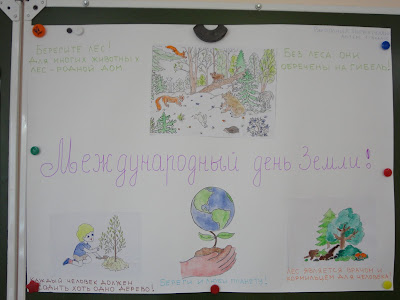 Берегите лес!
Для многих животных
лес - родной дом.
Без леса они
обречены на гибель!
Международный день Земли!
Каждый человек должен
посадить хоть одно дерево!
Береги и люби планету!
Лес является врачом и
кормильцем для человека!